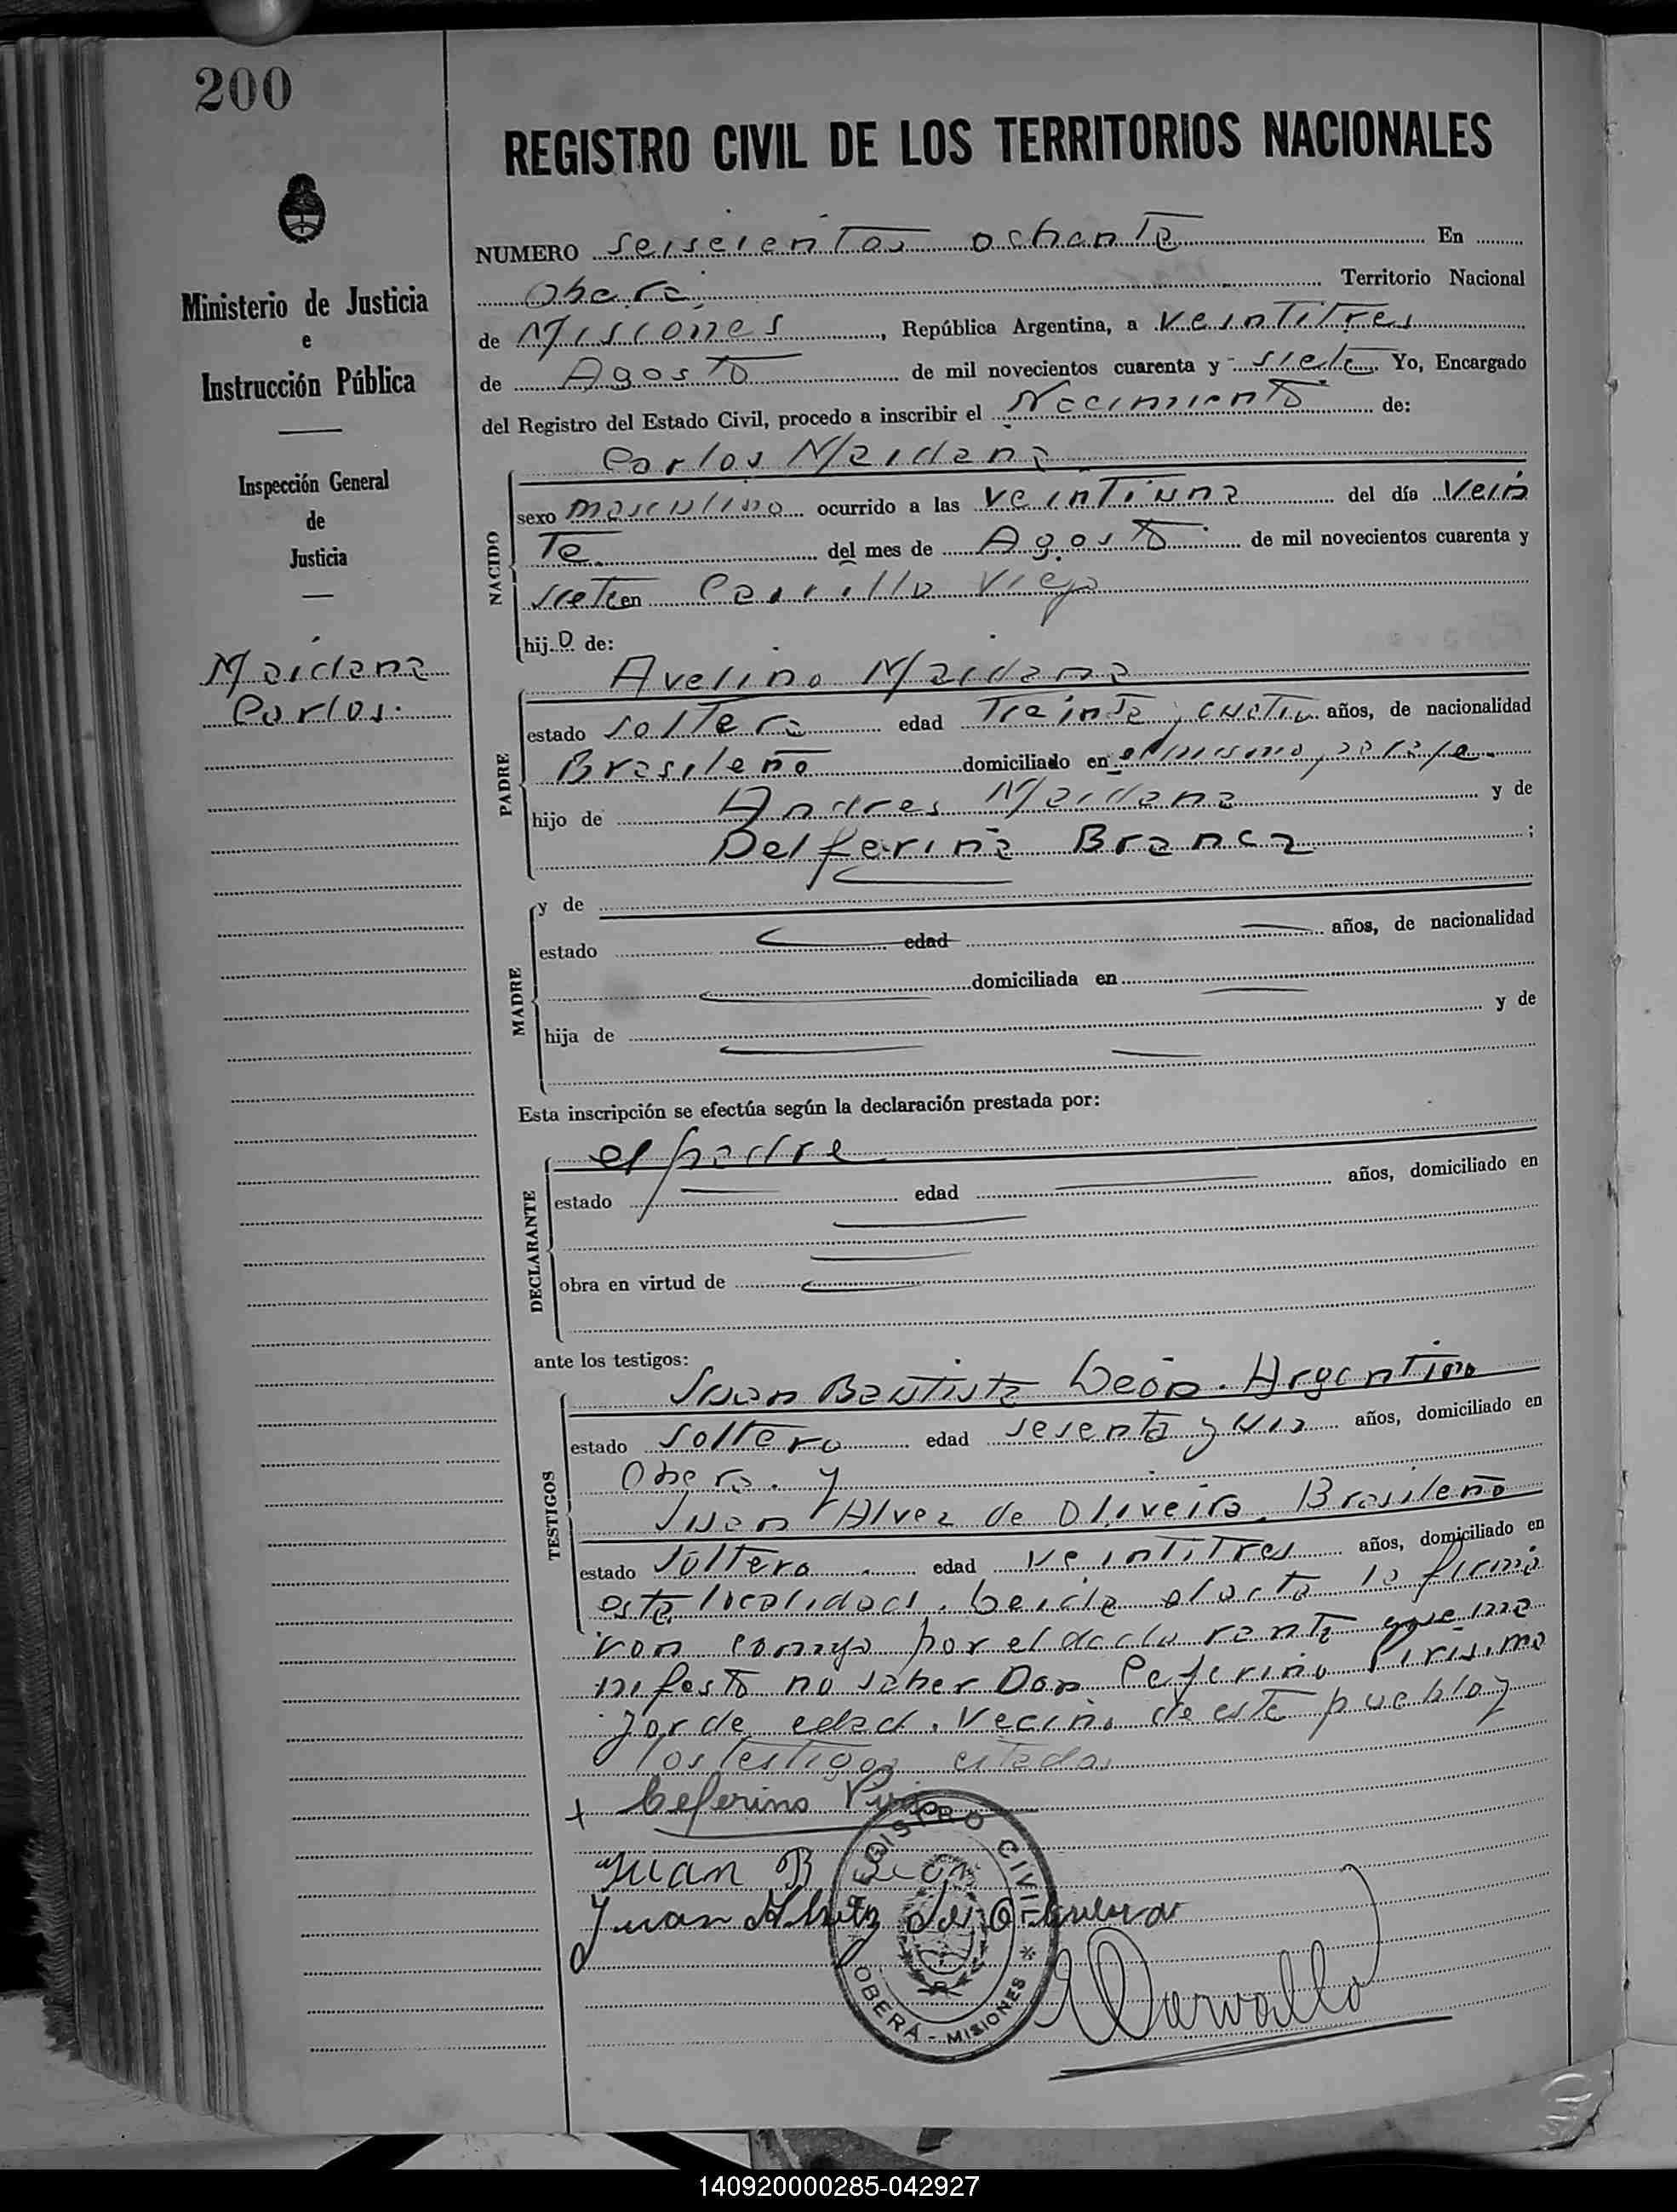 200
REGISTRO CIVIL DE LOS TERRITORIOS NACIONALES
Ministerio de Justicia
e
Instrucción Pública
Inspección General
de
Justicia
Maidana
Carlos.
NUMERO seiscientos ochenta En
Obera, Territorio Nacional
de Misiones, República Argentina, a veintitres
de Agosto de mil novecientos cuarenta y siete. Yo, Encargado
del Registro del Estado Civil, procedo a inscribir el Nacimiento de:
NACIDO
Carlos Maidana
sexo masculino ocurrido a las veintiuna del día Vein
te. del mes de Agosto de mil novecientos cuarenta y
siete en Viejo
hijo de:
PADRE
Avelino Maidana
estado soltero edad Treinta y cuatro años, de nacionalidad
Brasileño domiciliado en el mismo paraje.
hijo de Andres Maidana y de
Delferina Branca ;
MADRE
y de
estado edad años, de nacionalidad
domiciliada en
hija de y de
Esta inscripción se efectúa según la declaración prestada por:
DECLARANTE
el padre
estado edad años, domiciliado en
obra en virtud de
ante los testigos:
TESTIGOS
Juan Bautista León. Argentino
estado soltero edad sesenta y un años, domiciliado en
Obera. y
Juan Alvez de Oliveira. Brasileño
estado soltero edad veintitres años, domiciliado en
esta localidad. Leida el acta la firma
ron conmigo por el declarante que ma
nifesto no saber Don Ceferino Piris, ma
yor de edad. Vecino de este pueblo y
los testigos citados
+ Ceferino Piris
Juan B León
Juan Alvez de Oliveira
REGISTRO CIVIL
* OBERÁ - MISIONES *
140920000285-042927